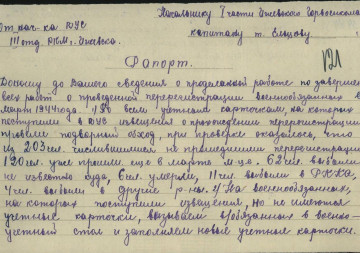 Начальнику I части Ижевского Горвоенкома
От нач-ка ВУС
III отд. РКМ г. Ижевска. капитану т. Ельцову
121
Рапорт.
Доношу до Вашего сведения о проделанной работе по завершению
всех работ о проведенной перерегистрации военнообязанных в
марте 1944 года. всеми учетными карточками, на которых
поступили в ВУС извещения о прохождении перерегистрации
провели подворный обход, при проверке оказалось, что
из 203 чел. числившимися не прошедшими перерегистрации
120 чел. уже прошли еще в марте м-це. 62 чел. выбыли
не известно куда, 6 чел. умерли, 11 чел. выбыли в РККА,
4 чел. выбыли в другие р-ны. военнообязанных,
на которых поступили извещения, но не имеются
учетные карточки, вызываем в/обязанных в военно-
учетный стол и заполняем новые учетные карточки.